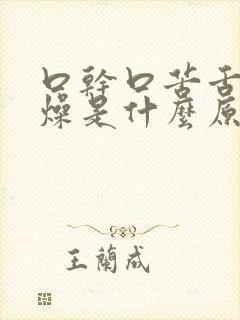 口幹口苦舌
燥是什麼原
王蘭成